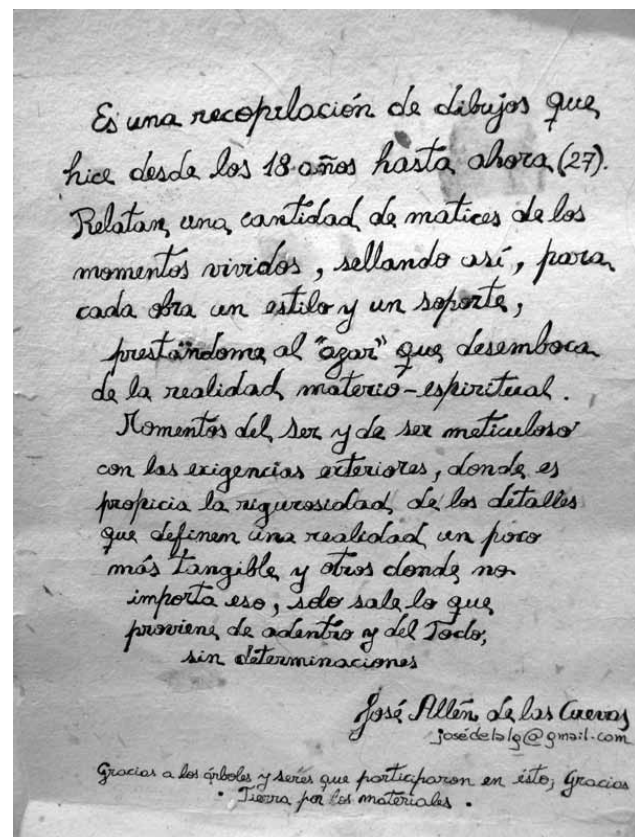 Es una recopilación de dibujos que
hice desde los 18 años hasta ahora (27).
Relatan una cantidad de matices de los
momentos vividos, sellando así, para
cada obra un estilo y un soporte,
prestándome al "azar" que desemboca
de la realidad materio-espiritual.
Momentos del ser y de ser meticuloso
con las exigencias exteriores, donde es
propicia la rigurosidad de los detalles
que definen una realidad un poco
más tangible y otros donde no
importa eso, solo sale lo que
proviene de adentro y del Todo,
sin determinaciones
José Allén de las Cuevas
josedelalg@gmail.com
Gracias a los árboles y seres que participaron en esto; Gracias
• Tierra por los materiales •